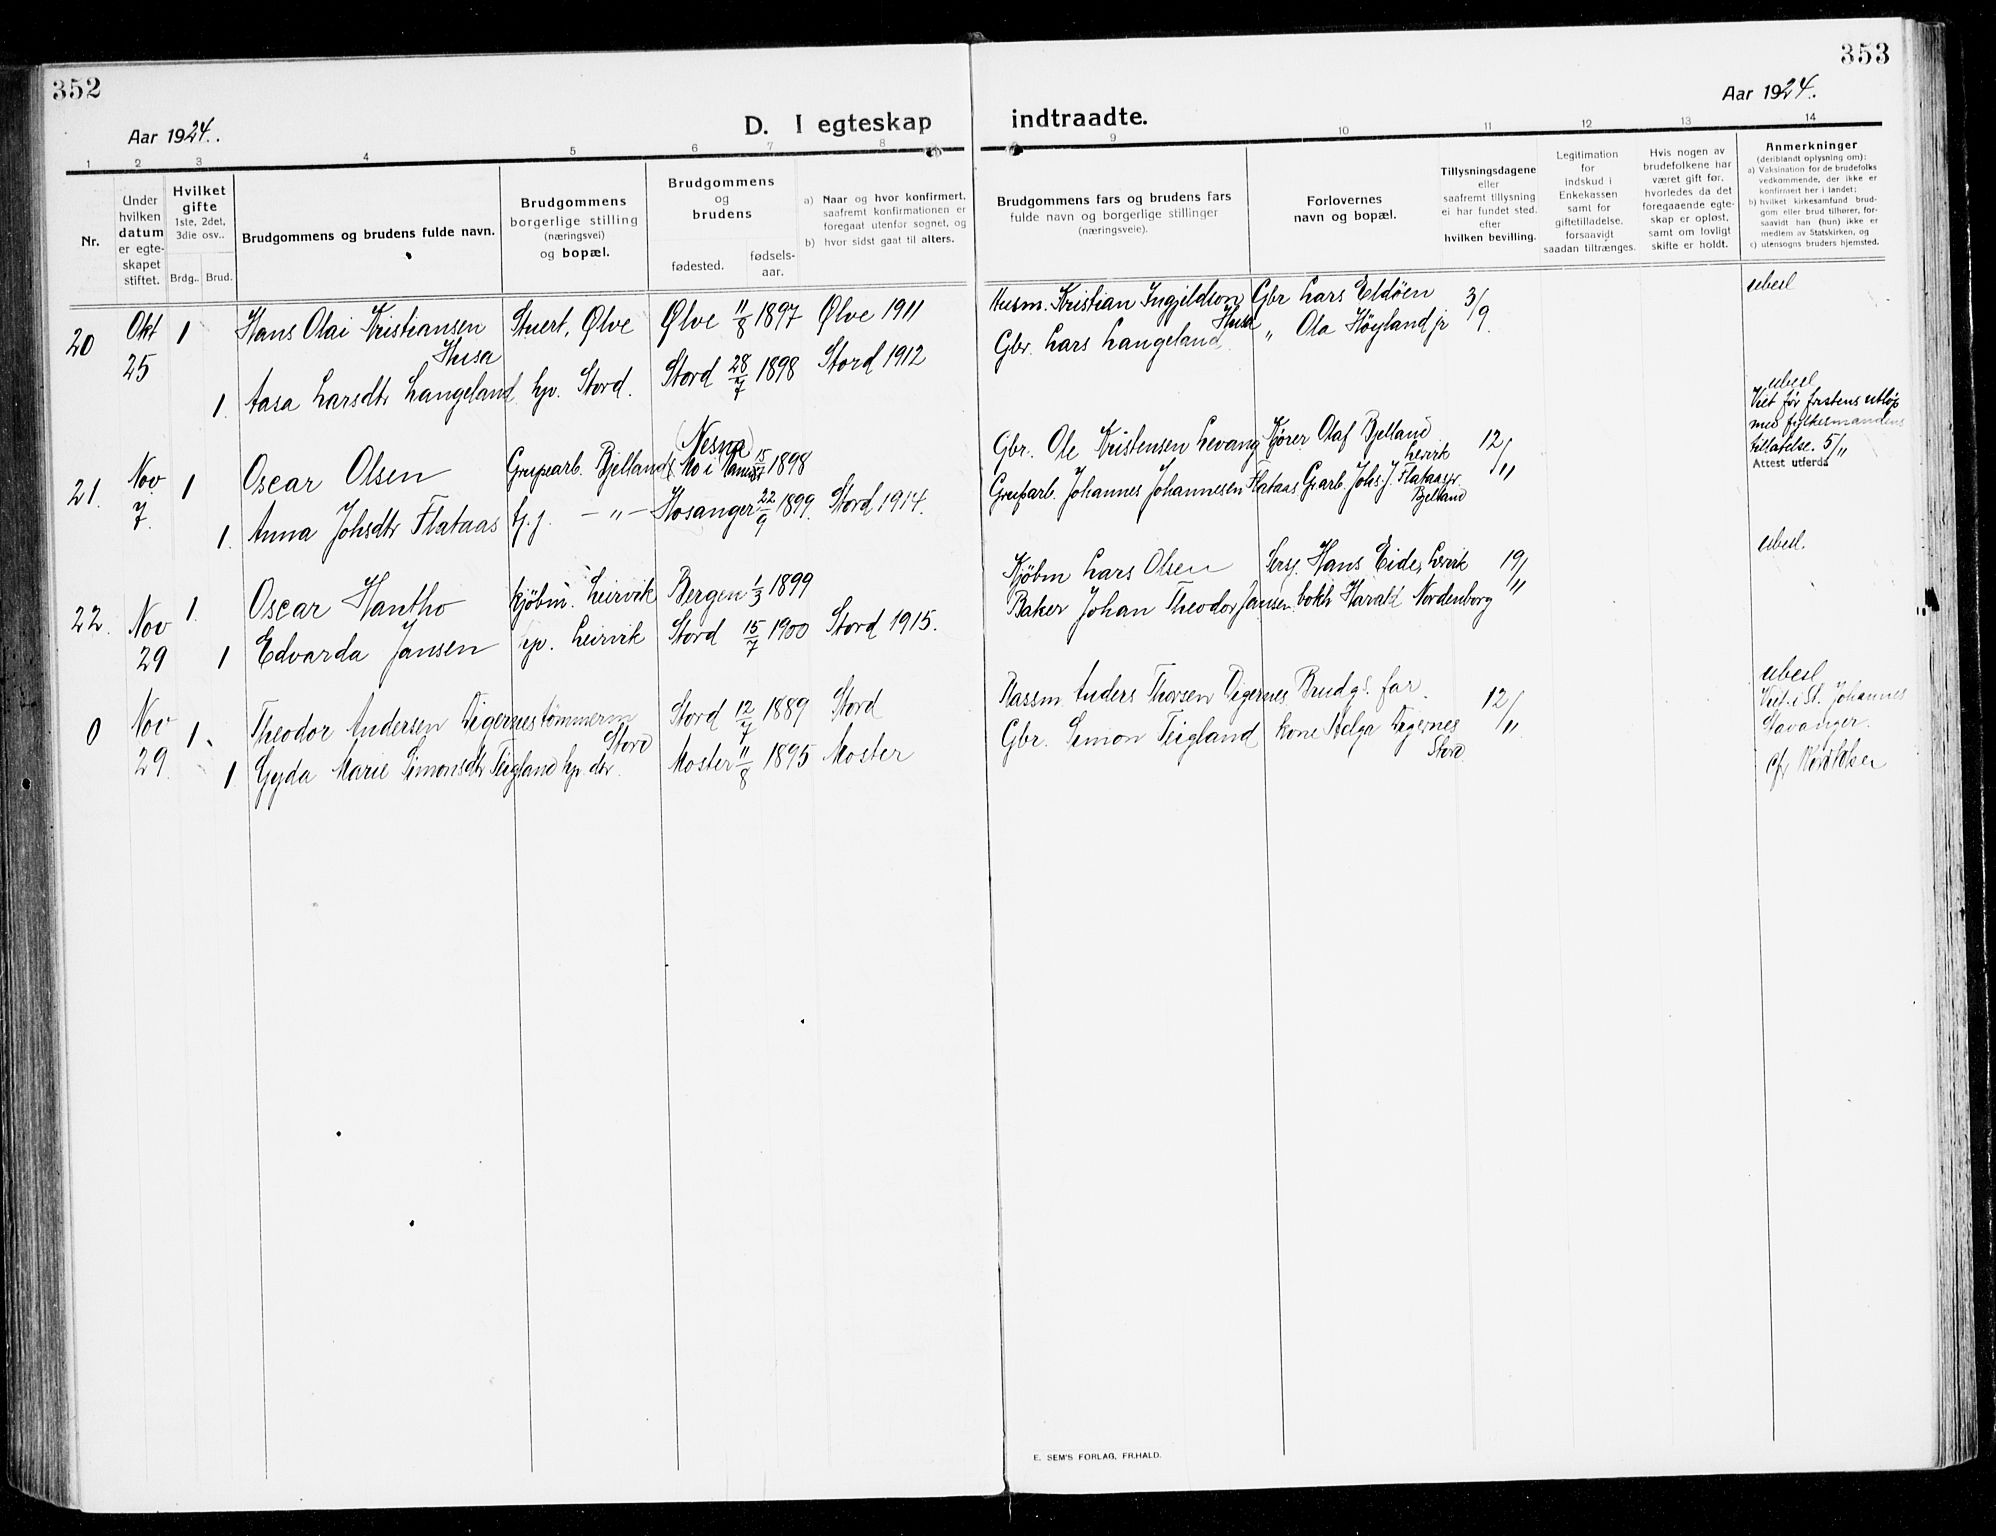 352
353
Aar 1924.
Aar 1924.
D. I egteskap indtraadte.
1 2 3 4 5 6 7 8 9 10 11 12 13 14
Nr.
Under
hvilken
datum
er egte-
skapet
stiftet.
Hvilket
gifte
1ste, 2det,
3die osv..
Brdg.. Brud.
Brudgommens og brudens fulde navn.
Brudgommens
borgerlige stilling
(næringsvei)
og bopæl.
Brudgommens
og
brudens
fødested.
fødsels-
aar.
a) Naar og hvor konfirmert,
saafremt konfirmationen er
foregaat utenfor sognet, og
b) hvor sidst gaat til alters.
Brudgommens fars og brudens fars
fulde navn og borgerlige stillinger
(næringsveie).
Forlovernes
navn og bopæl.
Tillysningsdagene
eller
saafremt tillysning
ei har fundet sted.
efter
hvilken bevilling.
Legitimation
for
Indskud i
Enkekassen
samt for
giftetilladelse.
forsaavidt
saadan tiltrænges.
Hvis nogen av
brudefolkene har
været gift før.
hvorledes da det
foregaaende egte-
skap er opløst.
samt om lovligt
skifte er holdt.
Anmerkninger
(deriblandt oplysning om):
a) Vaksination for de brudefolks
vedkommende, der ikke er
konfirmert her i landet;
b) hvilket kirkesamfund brud-
gom eller brud tilhører, for-
saavidt han (hun) ikke er
medlem av Statskirken, og
c) utensogns bruders hjemsted.
20 Okt 25 1 Hans Olai Kristiansen Husa Stuert, Ølve Ølve 11/8 1897 Ølve 1911 Husm. Kristian Ingjildson Husa Gbr Lars Eldøen 3/9. ubesl
1. Aasa Larsdtr Langeland hp. Stord. Stord 28/7 1898 Stord 1912 Gbr. Lars Langeland. " Ola Höyland jr
21. Nov 7. 1 Oscar Olsen Grupearb. Bjelland (Nesna) Mo i Ranen 15/ 1898 Gbr. Ole Kristensen Levang Kjører Olaf Bjelland Lervik 12/11 ubesl
Viet før fristens utløp
med fylkesmandens
tillatelse. 5/11
Attest utferda
1. Anna Johsdtr Flataas tj. j. - " - Hosanger 22/9 1899. Stord 1914. Gruparb. Johannes Johannesen Flataas Grarb. Johs. J. Flataas jr. Bjelland
22. Nov 29 1. Oscar Hantho kjøbm. Leirvik Bergen 1/3 1899 Kjöbm Lars Olsen Sersj. Hans Eide, Lervik 19/11 ubesl.
1 Edvarda Jansen hp. Leirvik Stord 15/7 1900 Stord 1915. Baker Johan Theodor Jansen. bokh Harald Nordenborg
0 Nov 29. 1. Theodor Andersen Digernes tömmerm Stord Stord 12/7 1889 Stord Anders Thorsen Digernes Brudg. far. 12/11. ubesl
Viet i St. Johannes
Stavanger.
1 Gyda Marie Simonsdtr Teigland hp. der. Moster 11/8 1895 Moster Gbr. Simon Teigland kone Helga Digernes Stord
E. SEM'S FORLAG, FR.HALD.